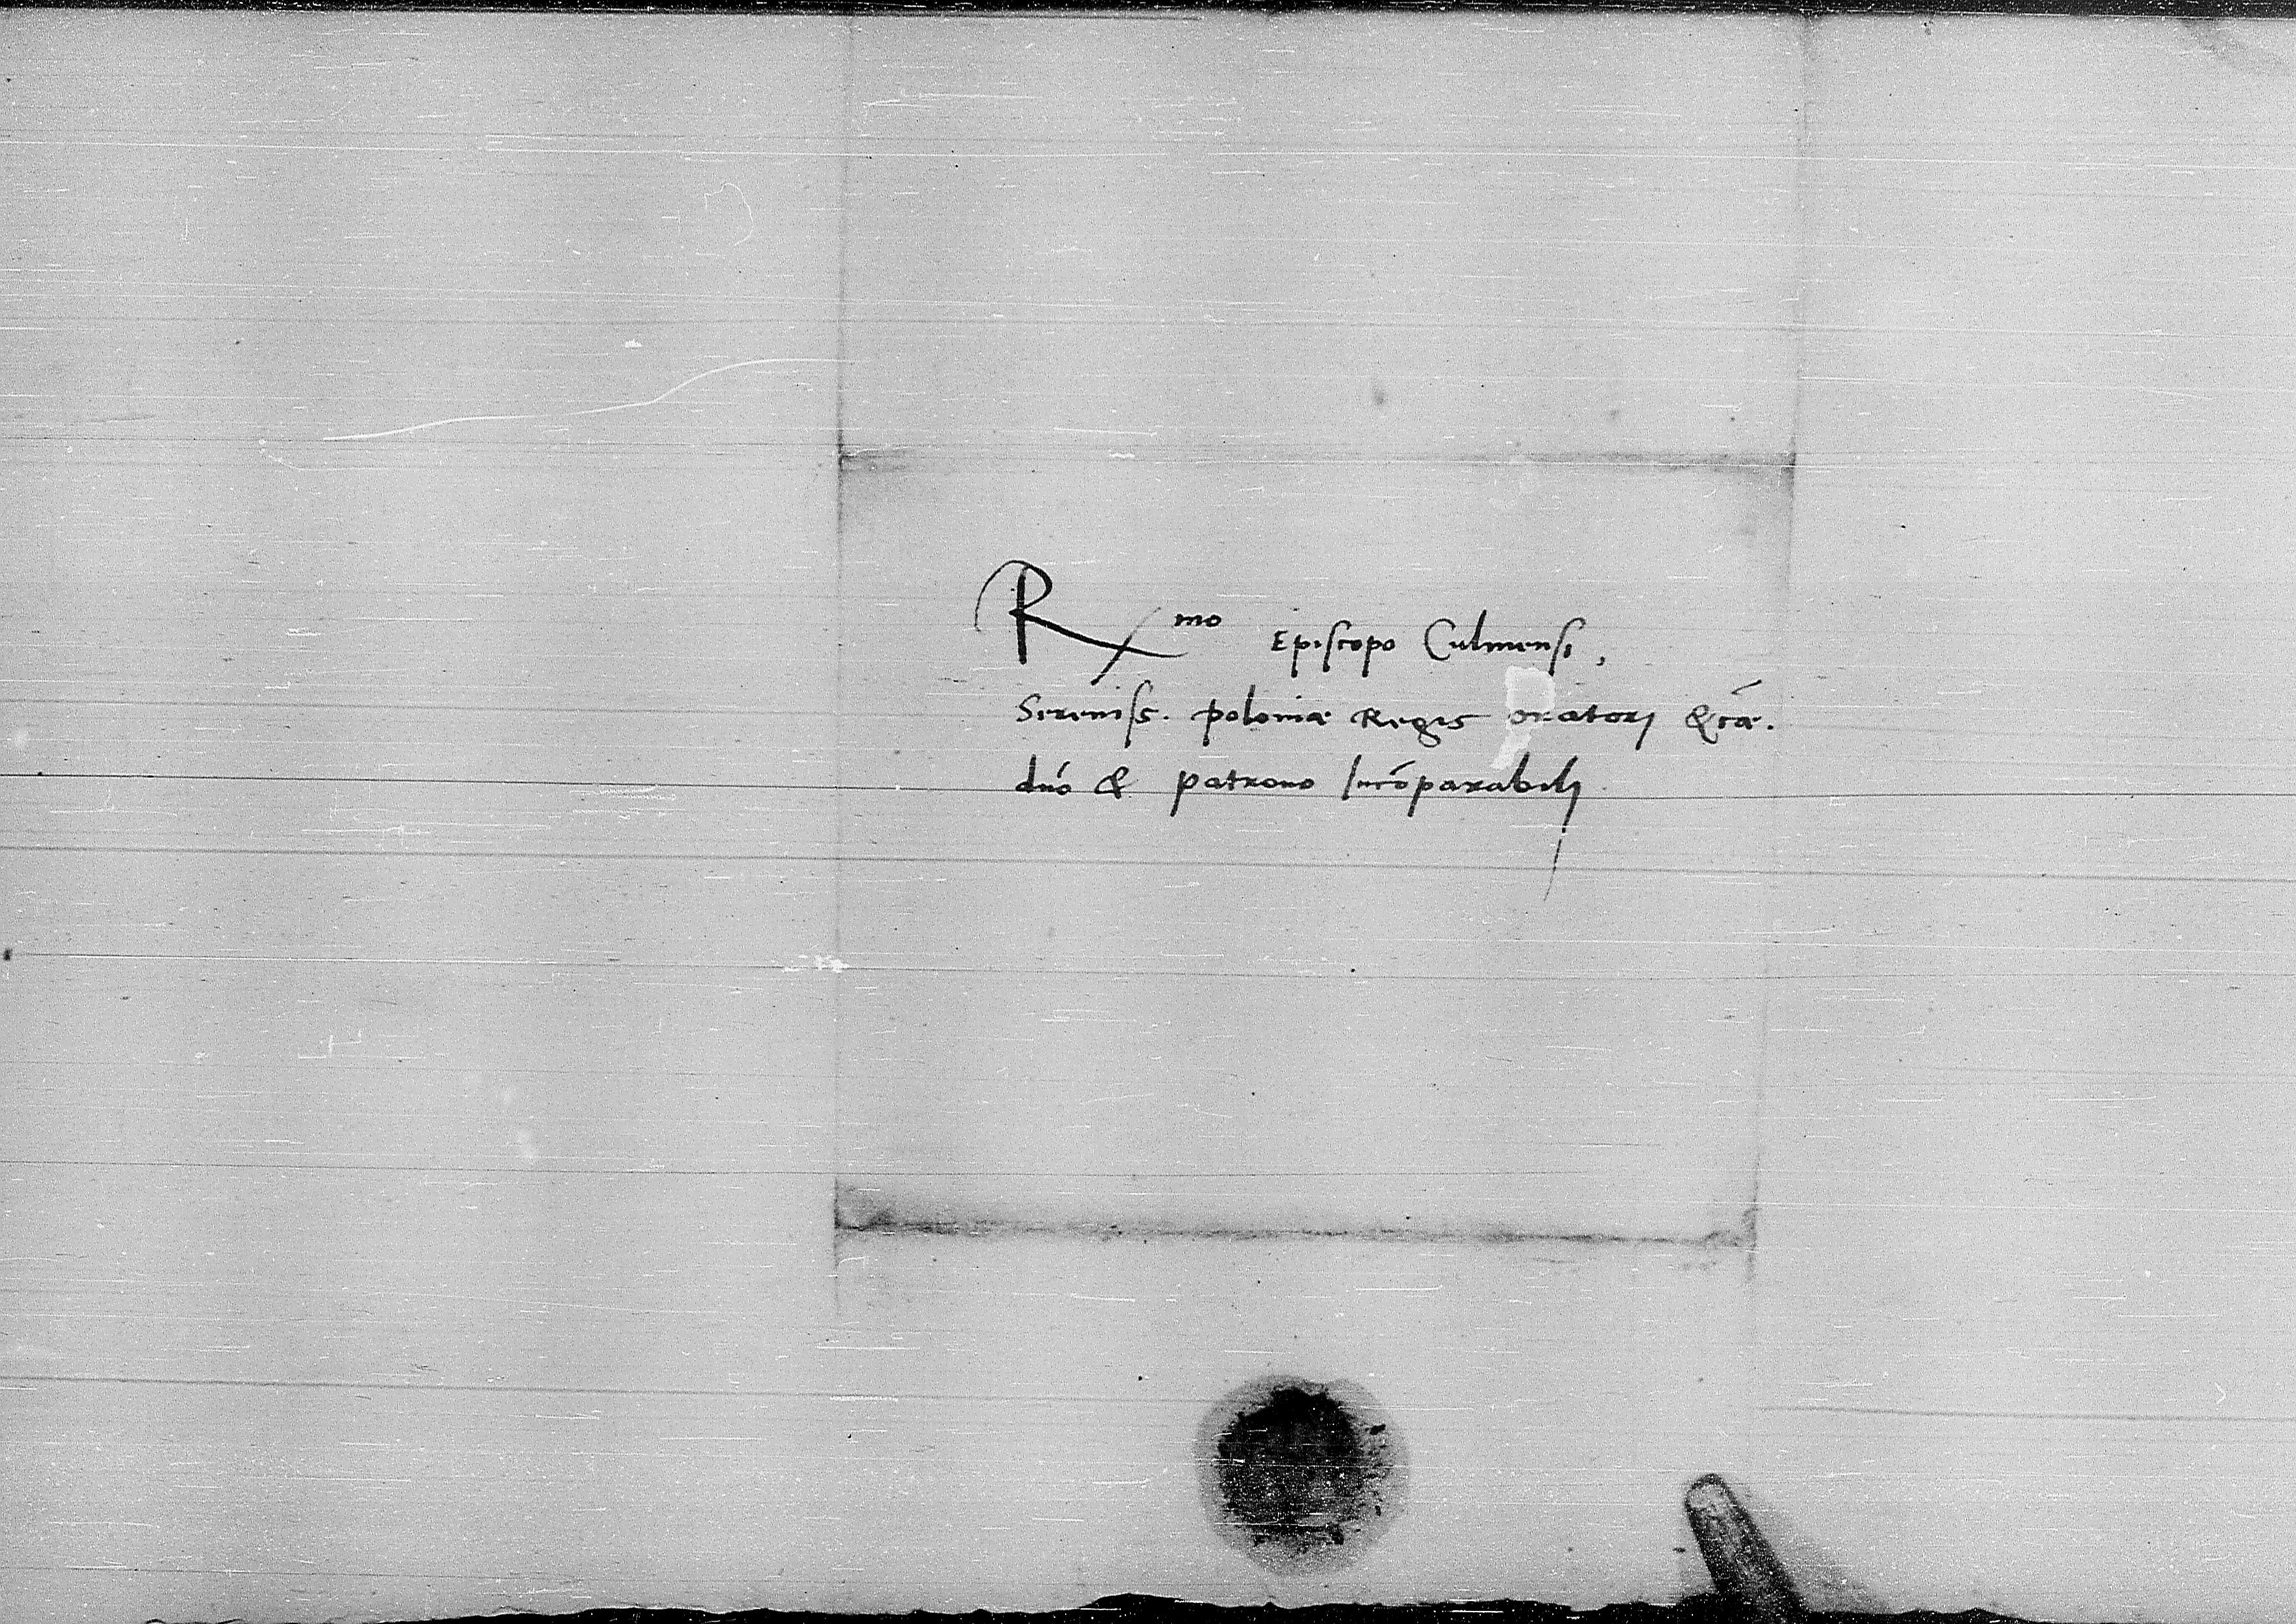 Rmo Episcopo Culmensi,
Sereniss. poloniæ Regis oratori &cæ.
dno & patrono Incōparabili